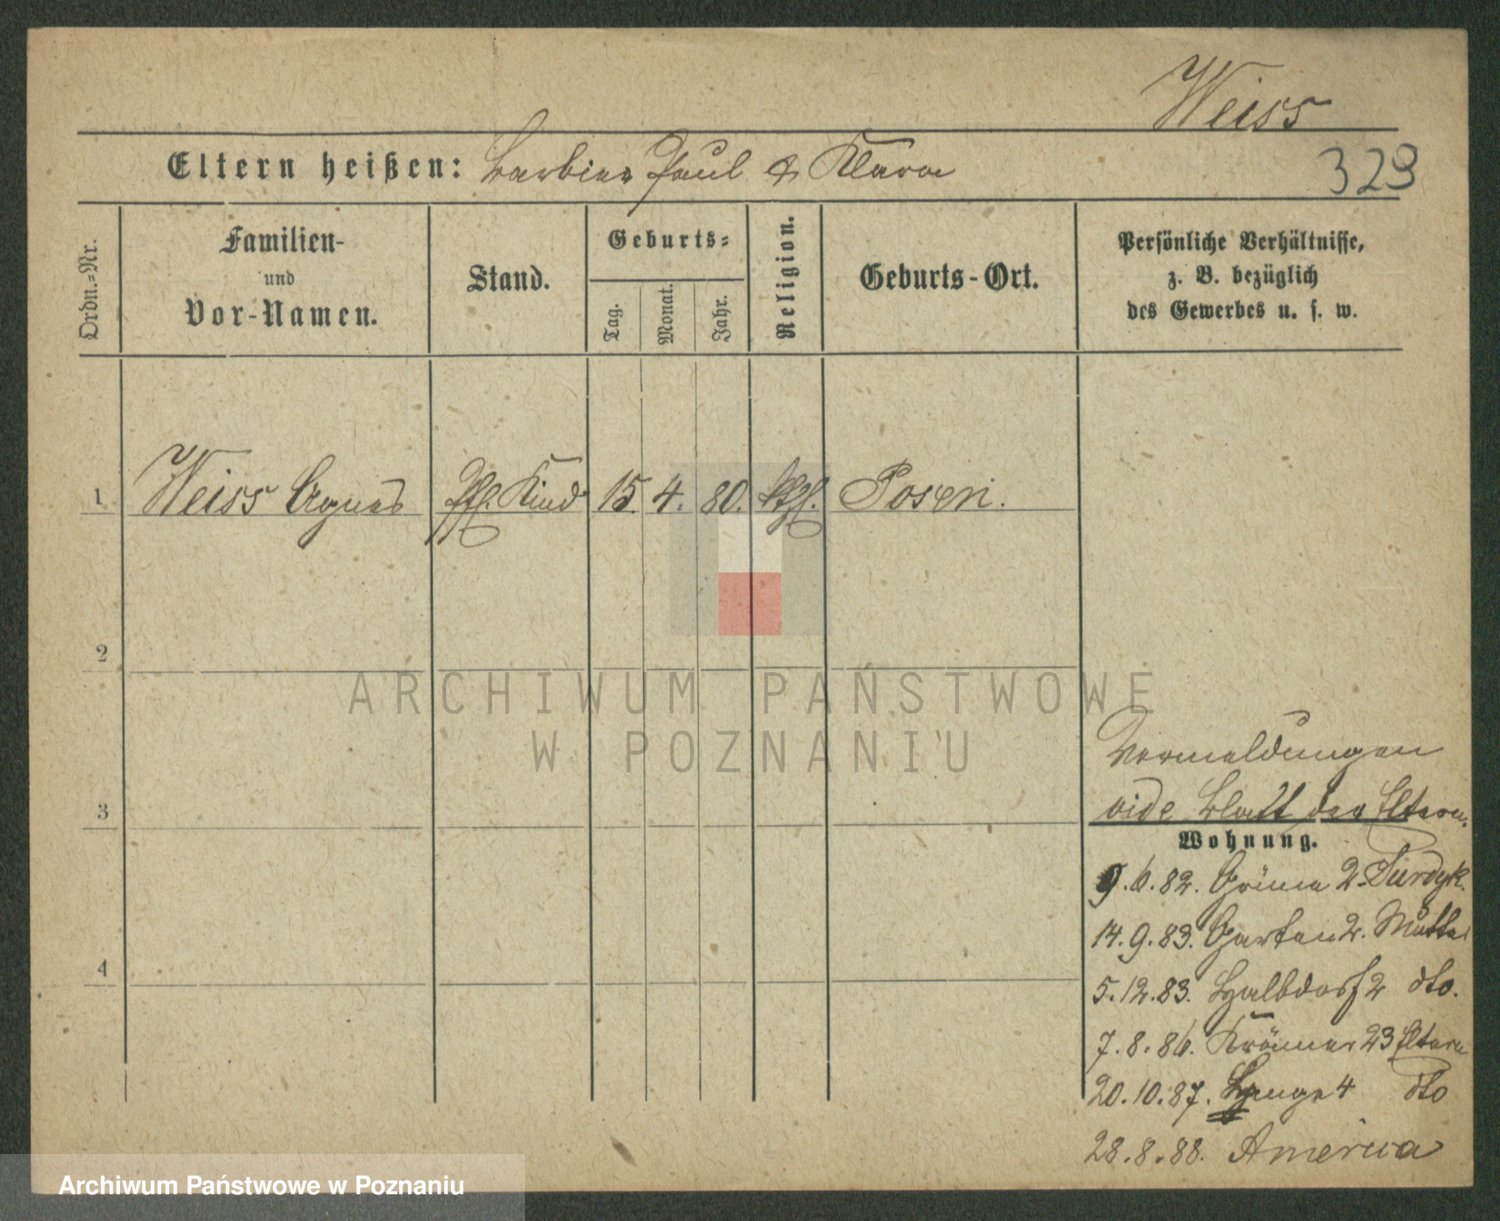 Weiss
Eltern heißen: Barbier Paul & Klara
329
Ordn.-Nr.
Familien-
und
Vor-Namen.
Stand.
Geburts-
Tag.
Monat.
Jahr.
Religion.
Geburts-Ort.
Persönliche Verhältnisse,
z. B. bezüglich
des Gewerbes u. s. w.
1 Weiss Agnes Pfl. Kind 15. 4. 80. Posen.
2
3
4
ARCHIWUM PAŃSTWOWE
W POZNANIU
Vermeldungen
vide Blatt der Eltern.
Wohnung.
9.6.82. 2.
14.9.83. Garten 2. Mutter
5.12.83. Halbdorf 2 dto.
7.8.86. Krämer 23 Eltern
20.10.87. 4 dto
28.8.88. America
Archiwum Państwowe w Poznaniu